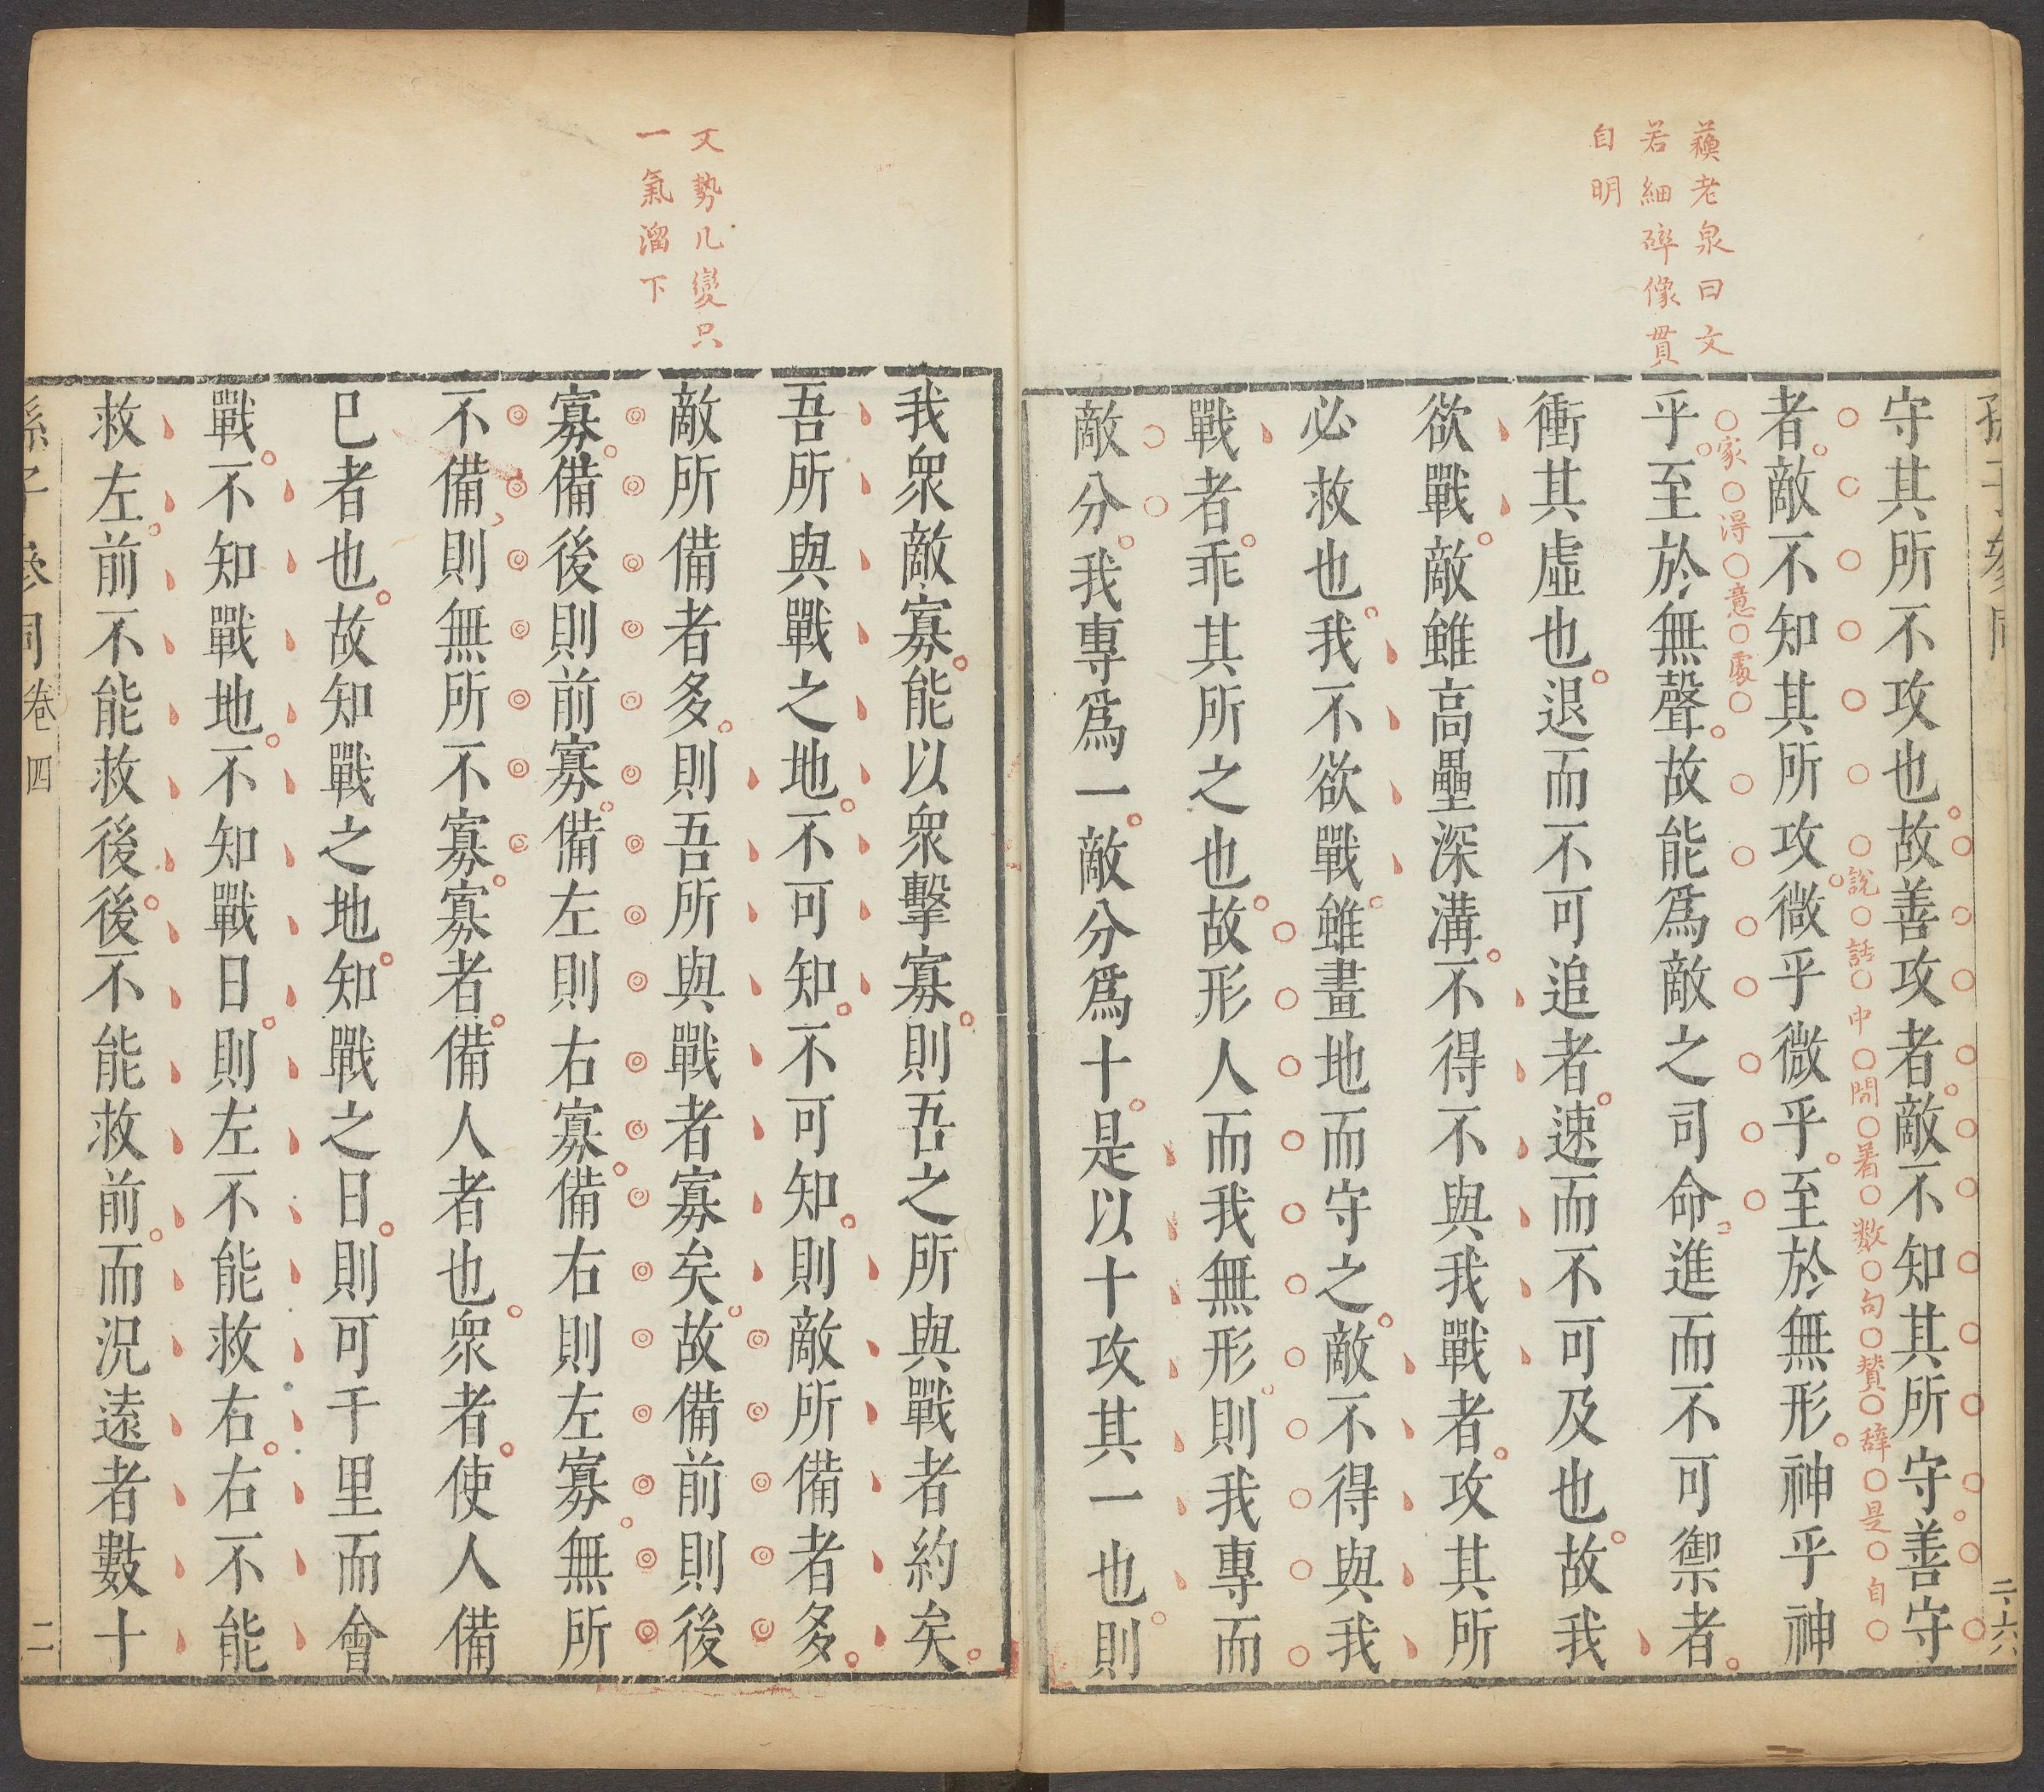 蘓老泉曰文
若細碎像貫
自明
守其所不攻也故善攻者敵不知其所守善守
說話中間着数句賛辞是自
者敵不知其所攻微乎微乎至於無形神乎神
家得意處
乎至於無聲故能爲敵之司命進而不可禦者
衝其虛也退而不可追者速而不可及也故我
欲戰敵雖高壘深溝不得不與我戰者攻其所
必救也我不欲戰雖畫地而守之敵不得與我
戰者乖其所之也故形人而我無形則我專而
敵分我專爲一敵分爲十是以十攻其一也則
文勢几變只
一氣溜下
我衆敵寡能以衆擊寡則吾之所與戰者約矣
吾所與戰之地不可知不可知則敵所備者多
敵所備者多則吾所與戰者寡矣故備前則後
寡備後則前寡備左則右寡備右則左寡無所
不備則無所不寡寡者備人者也衆者使人備
已者也故知戰之地知戰之日則可千里而會
戰不知戰地不知戰日則左不能救右右不能
救左前不能救後後不能救前而況遠者數十
孫子參同 卷四 二